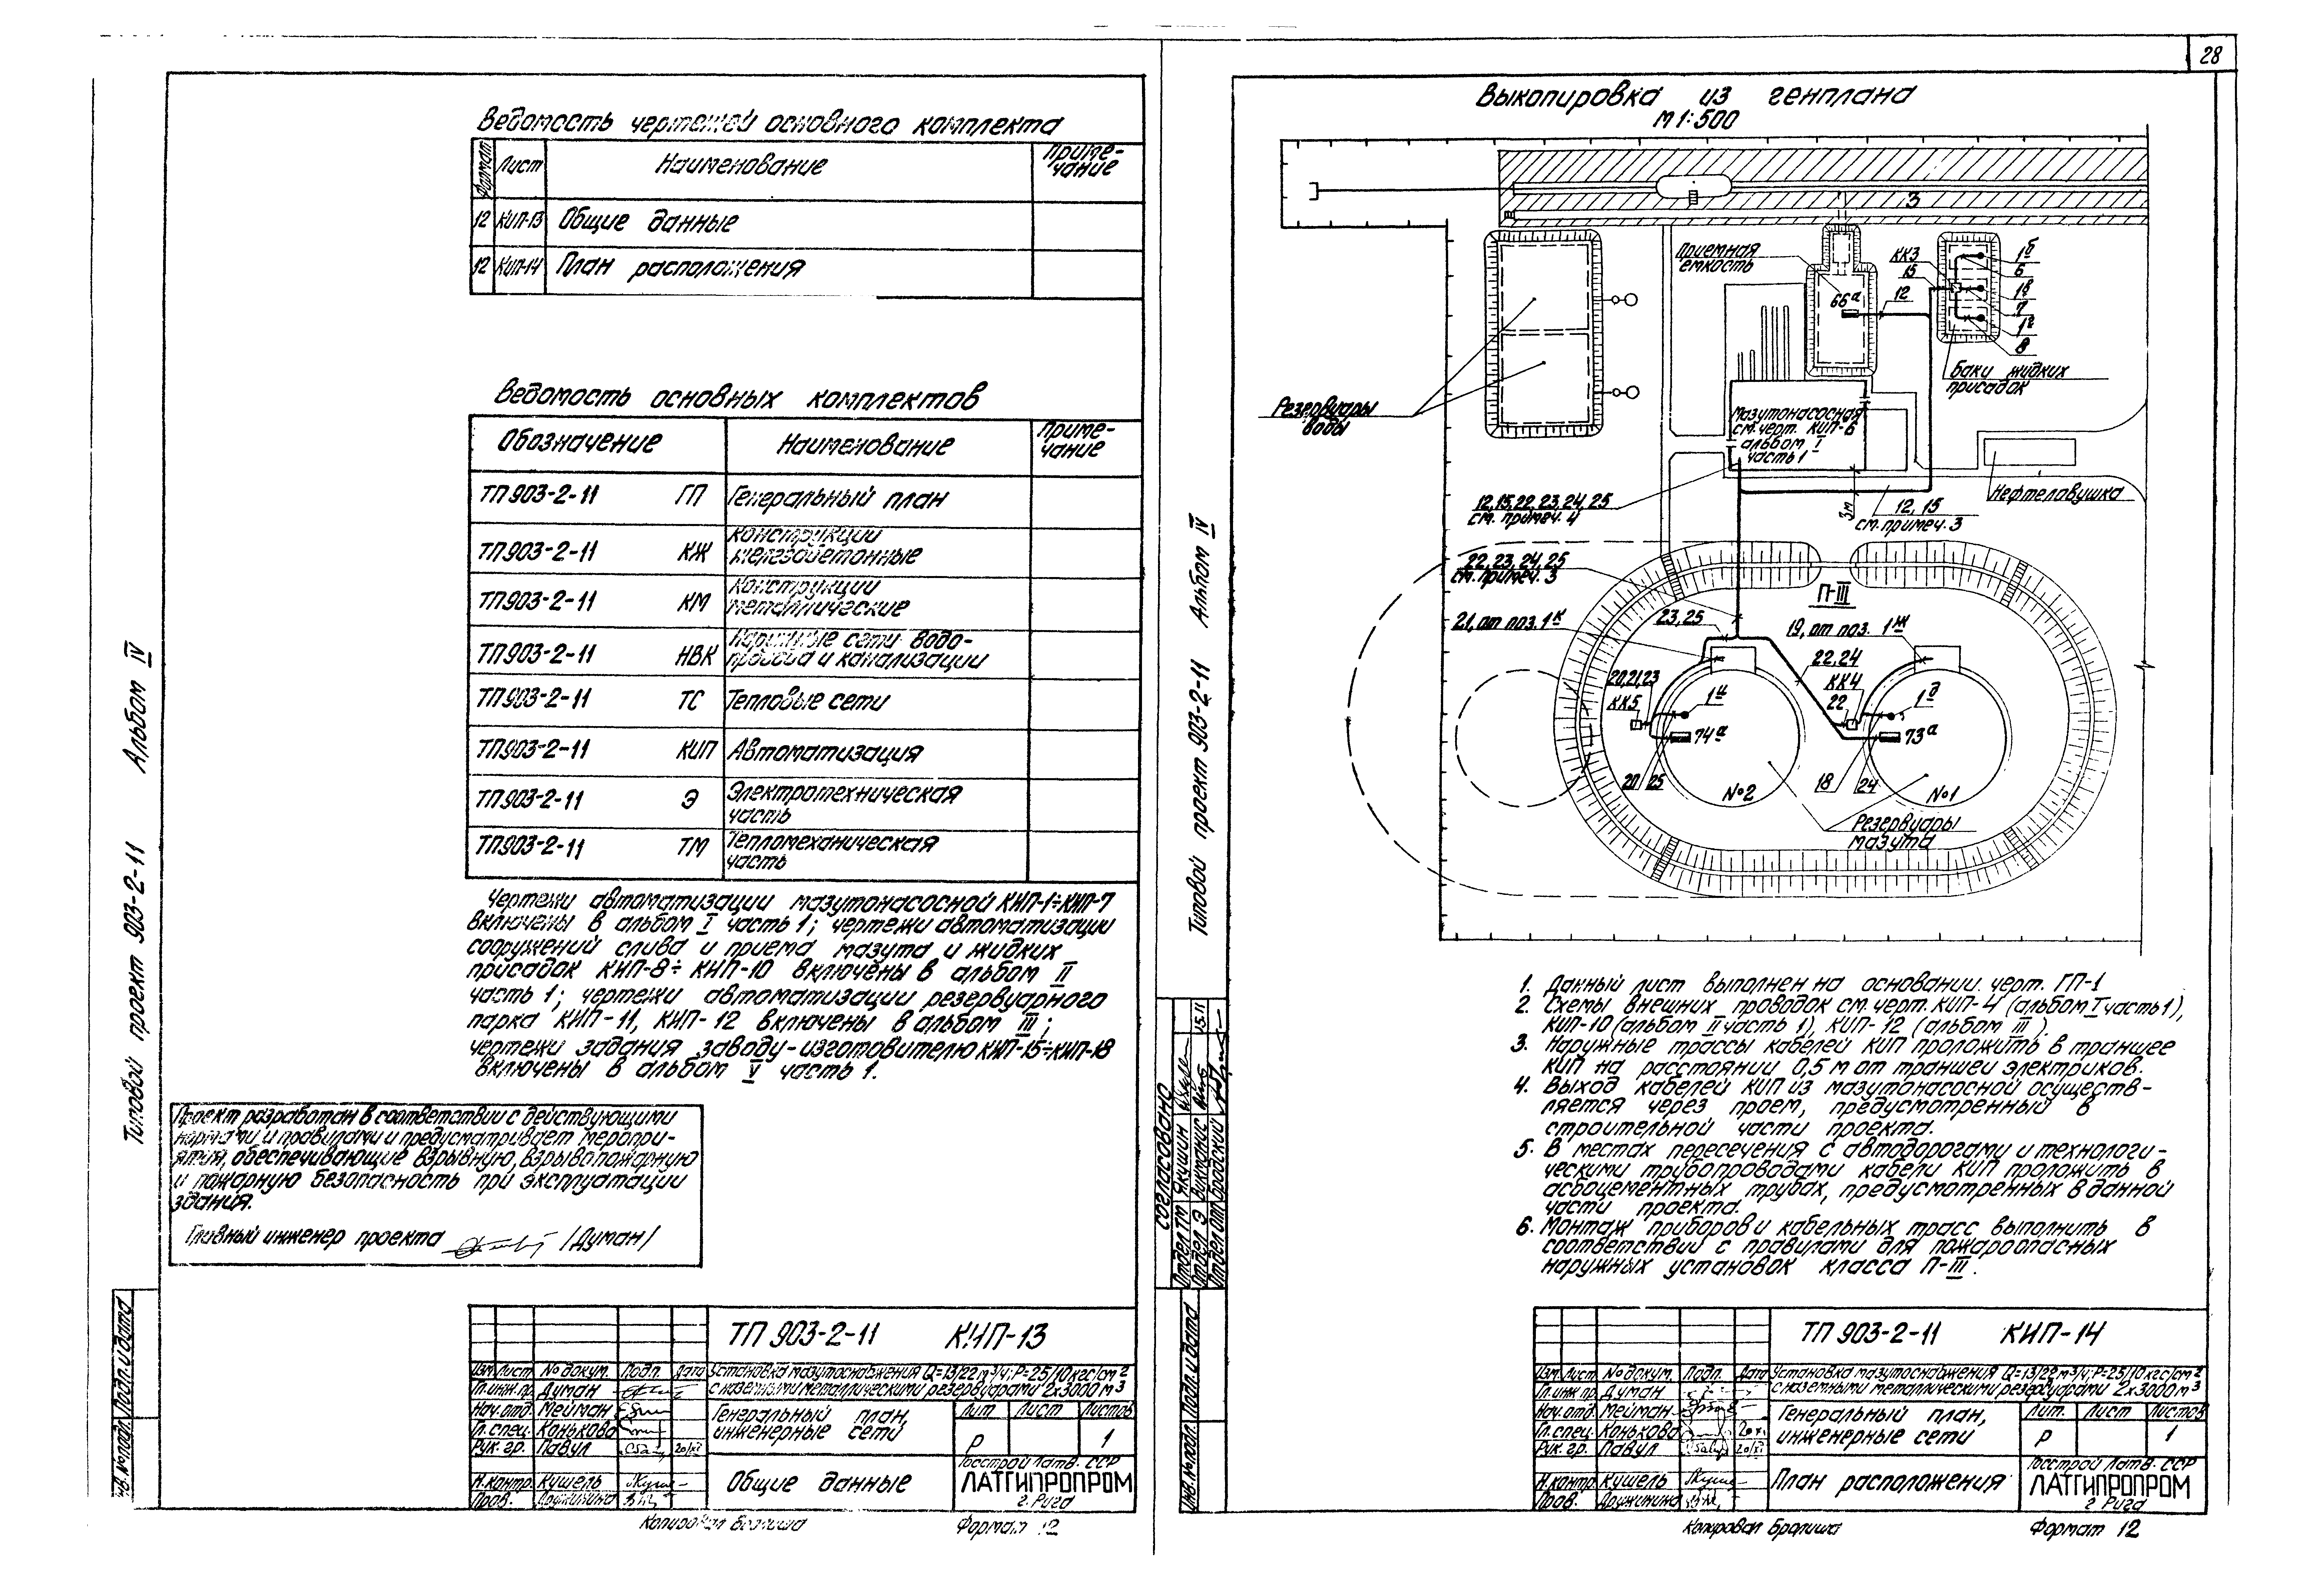 28
Ведомость чертежей основного комплекта
Формат
Лист
Наименование
Приме-
чание
12 КИП-13 Общие данные
12 КИП-14 План расположения
Ведомость основных комплектов
Обозначение
Наименование
Приме-
чание
ТП 903-2-11 ГП Генеральный план
ТП 903-2-11 КЖ Конструкции
железобетонные
ТП 903-2-11 КМ Конструкции
металлические
ТП 903-2-11 НВК Наружные сети водо-
провода и канализации
ТП 903-2-11 ТС Тепловые сети
ТП 903-2-11 КИП Автоматизация
ТП 903-2-11 Э Электротехническая
часть
ТП 903-2-11 ТМ Тепломеханическая
часть
Чертежи автоматизации мазутонасосной КИП-1÷КИП-7
включены в альбом I часть 1; чертежи автоматизации
сооружений слива и приема мазута и жидких
присадок КИП-8÷КИП-10 включены в альбом II
часть 1; чертежи автоматизации резервуарного
парка КИП-11, КИП-12 включены в альбом III;
чертежи задания заводу-изготовителю КИП-15÷КИП-18
включены в альбом V часть 1.
Проект разработан в соответствии с действующими
нормами и правилами и предусматривает меропри-
ятия, обеспечивающие взрывную, взрывопожарную
и пожарную безопасность при эксплуатации
здания.
Главный инженер проекта /Думан/
Типовой проект 903-2-11 Альбом IV
Подп. и дата
Инв. №подл.
ТП 903-2-11 КИП-13
Изм. Лист № докум. Подп. Дата
Установка мазутоснабжения Q=13/22 м³/ч; Р=25/10 кгс/см²
с наземными металлическими резервуарами 2х3000 м³
Гл. инж. пр. Думан
Нач. отд. Мейман
Гл. спец. Конькова
Рук. гр. Павул 20/XI
Н. контр. Кушель
Пров. Дружинина
Генеральный план,
инженерные сети
Лит Лист Листов
Р 1
Общие данные
Госстрой Латв. ССР
ЛАТГИПРОПРОМ
г. Рига
Копировал Бралиша
Формат 12
Выкопировка из генплана
М 1:500
3
Приемная
емкость
ККЗ
15
12
66а
1б
6
1в
7
1г
8
Баки жидких
присадок
Резервуары
воды
Мазутонасосная
см. черт. КИП-6
альбом I
часть 1
Нефтеловушка
12, 15, 22, 23, 24, 25
см. примеч. 4
3м
12, 15
см. примеч. 3
22, 23, 24, 25
см. примеч. 3
П-III
21, от поз. 1к
23, 25
19, от поз. 1ж
22, 24
20, 21, 23
КК5
1и
КК4
22
1д
74а
73а
20
25
18
24
№2
№1
Резервуары
мазута
1. Данный лист выполнен на основании черт. ГП-1
2. Схемы внешних проводок см. черт. КИП-4 (альбом I часть 1),
КИП-10 (альбом II часть 1), КИП-12 (альбом III).
3. Наружные трассы кабелей КИП проложить в траншее
КИП на расстоянии 0,5 м от траншеи электриков.
4. Выход кабелей КИП из мазутонасосной осуществ-
ляется через проем, предусмотренный в
строительной части проекта.
5. В местах пересечения с автодорогами и технологи-
ческими трубопроводами кабели КИП проложить в
асбоцементных трубах, предусмотренных в данной
части проекта.
6. Монтаж приборов и кабельных трасс выполнить в
соответствии с правилами для пожароопасных
наружных установок класса П-III.
Типовой проект 903-2-11 Альбом IV
Согласовано
Отдел ТМ Якушин
Отдел Э Витанис
Отдел ОТ Бродский 15.11
Подп. и дата
Инв. №подл.
ТП 903-2-11 КИП-14
Изм. Лист № докум. Подп. Дата
Установка мазутоснабжения Q=13/22 м³/ч; Р=25/10 кгс/см²
с наземными металлическими резервуарами 2х3000 м³
Гл. инж. пр. Думан
Нач. отд. Мейман
Гл. спец. Конькова 20 XI
Рук. гр. Павул 20/XI
Н. контр. Кушель
Пров. Дружинина
Генеральный план,
инженерные сети
Лит. Лист Листов
Р 1
План расположения
Госстрой Латв. ССР
ЛАТГИПРОПРОМ
г. Рига
Копировал Бралиша
Формат 12